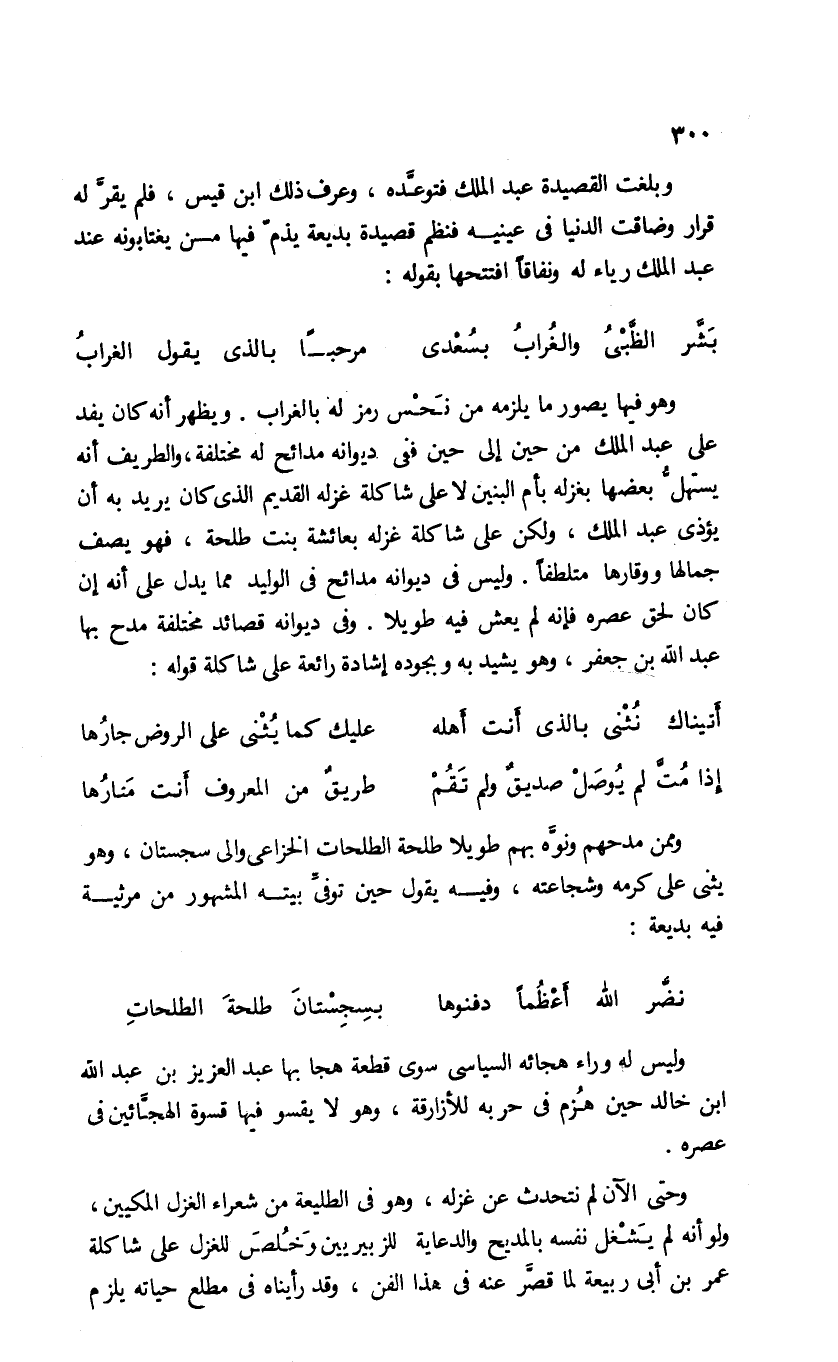 ٣٠٠
وبلغت القصيدة عبد الملك فتوعَّده ، وعرف ذلك ابن قيس ، فلم يقرَّ له
قرار وضاقت الدنيا فى عينيه فنظم قصيدة بديعة يذمّ فيها من يغتابونه عند
عبد الملك رياء له ونفاقاً افتتحها بقوله :
بَشَّر الظَّبْىُ والغُرابُ بسُعْدى مرحباً بالذى يقول الغرابُ
وهو فيها يصور ما يلزمه من نَحْس رمز له بالغراب . ويظهر أنه كان يفد
على عبد الملك من حين إلى حين ففى ديوانه مدائح له مختلفة ، والطريف أنه
يستهلُّ بعضها بغزله بأم البنين لا على شاكلة غزله القديم الذى كان يريد به أن
يؤذى عبد الملك ، ولكن على شاكلة غزله بعائشة بنت طلحة ، فهو يصف
جمالها ووقارها متلطفاً . وليس فى ديوانه مدائح فى الوليد مما يدل على أنه إن
كان لحق عصره فإنه لم يعش فيه طويلا . وفى ديوانه قصائد مختلفة مدح بها
عبد الله بن جعفر ، وهو يشيد به وبجوده إشادة رائعة على شاكلة قوله :
أتيناك نُثْنى بالذى أنت أهله عليك كما يُثْنى على الروض جارُها
إذا مُتَّ لم يُوصَلْ صديقٌ ولم تَقُمْ طريقٌ من المعروف أنت مَنارُها
وممن مدحهم ونوَّه بهم طويلا طلحة الطلحات الخزاعى والى سجستان ، وهو
يثنى على كرمه وشجاعته ، وفيه يقول حين توفىَّ بيته المشهور من مرثية
فيه بديعة :
نضَّر الله أَعْظُماً دفنوها بسِجِسْتانَ طلحةَ الطلحاتِ
وليس له وراء هجائه السياسى سوى قطعة هجا بها عبد العزيز بن عبد الله
ابن خالد حين هُزم فى حربه للأزارقة ، وهو لا يقسو فيها قسوة الهجَّائين فى
عصره .
وحتى الآن لم نتحدث عن غزله ، وهو فى الطليعة من شعراء الغزل المكيين ،
ولو أنه لم يَشْغل نفسه بالمديح والدعاية للزبيريين وخَلُصَ للغزل على شاكلة
عمر بن أبى ربيعة لما قصَّر عنه فى هذا الفن ، وقد رأيناه فى مطلع حياته يلزم